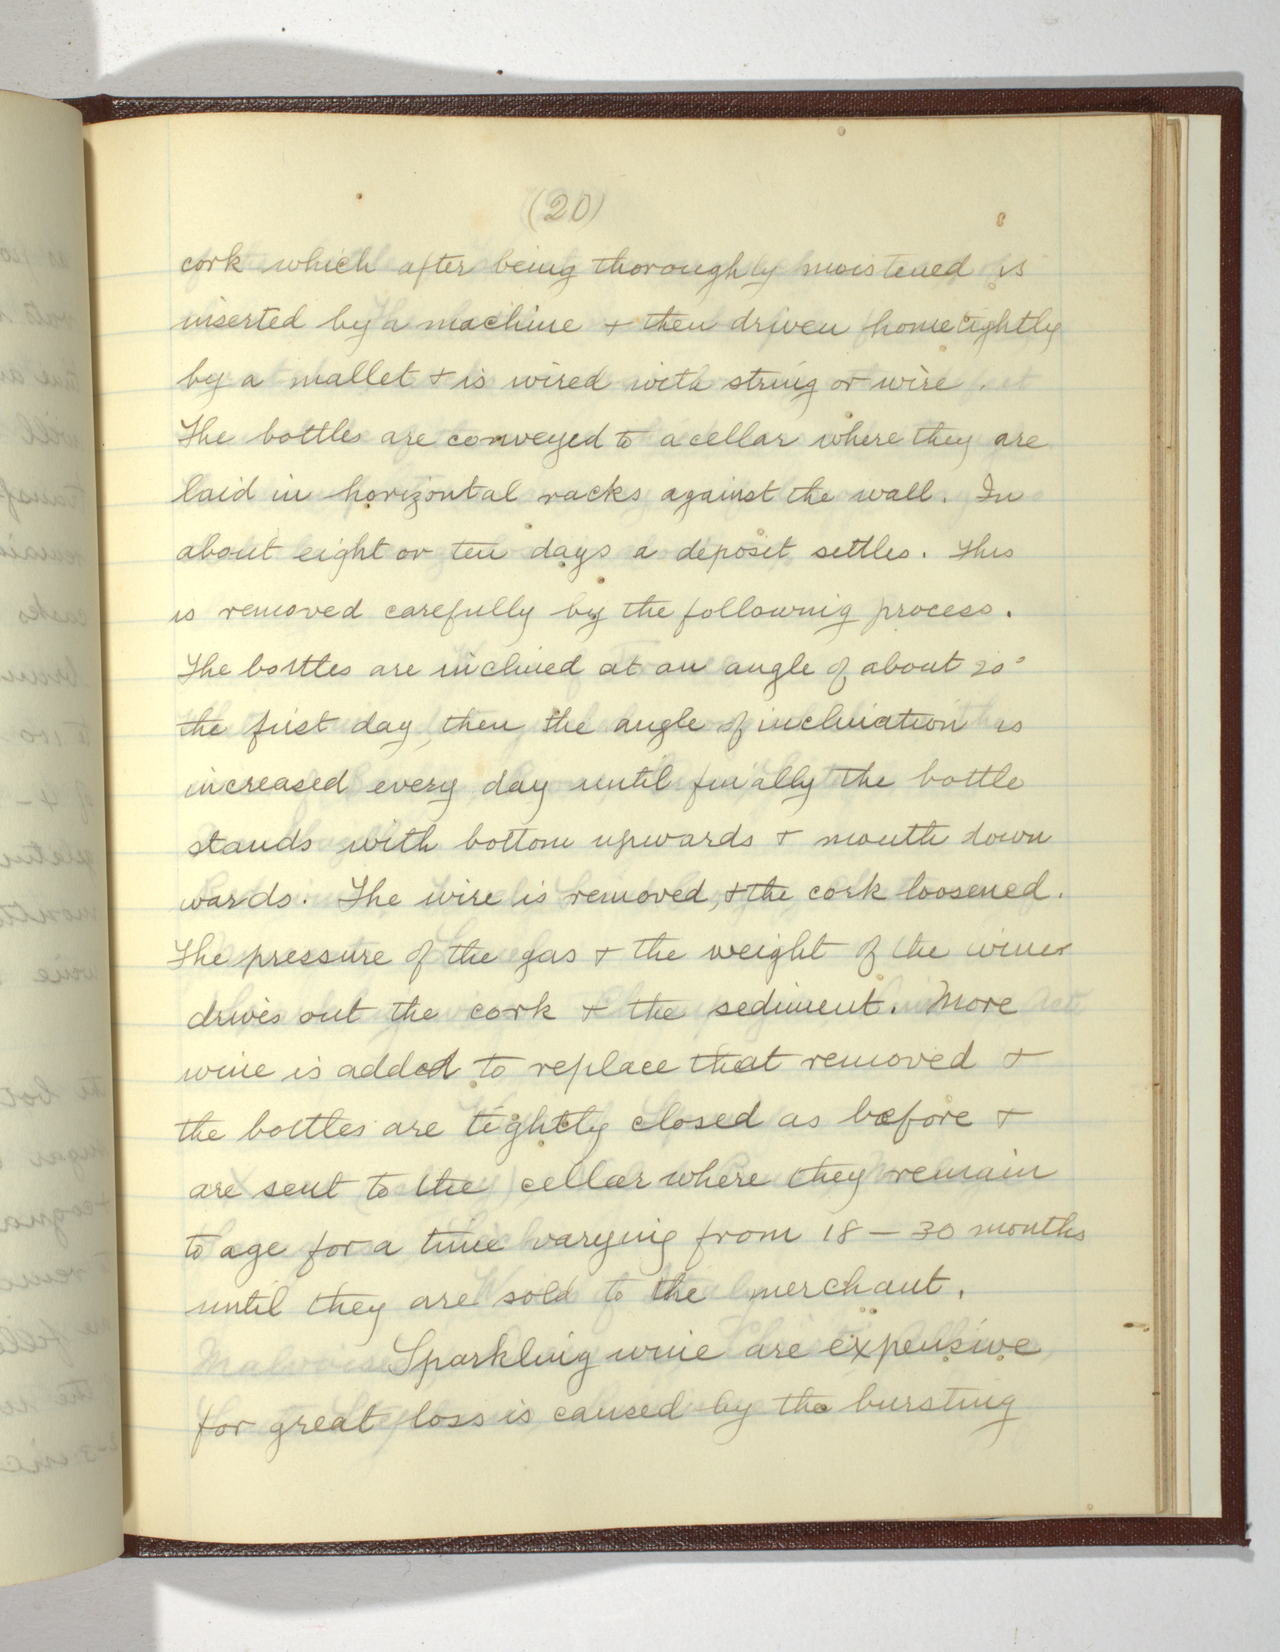 (20)
cork which after being thoroughly moistened is
inserted by a machine + then driven home tightly
by a mallet + is wired with string or wire.
The bottles are conveyed to a cellar where they are
laid in horizontal racks against the wall. In
about eight or ten days a deposit settles. This
is removed carefully by the following process.
The bottles are inclined at an angle of about 20°
the first day, then the angle of inclination is
increased every day until finally the bottle
stands with bottom upwards + mouth down
wards. The wire is removed, + the cork loosened.
The pressure of the gas + the weight of the wine
drives out the cork + the sediment. More
wine is added to replace that removed +
the bottles are tightly closed as before +
are sent to the cellar where they remain
to age for a time varying from 18 – 30 months
until they are sold to the merchant.
Sparkling wine are expensive
for great loss is caused by the bursting